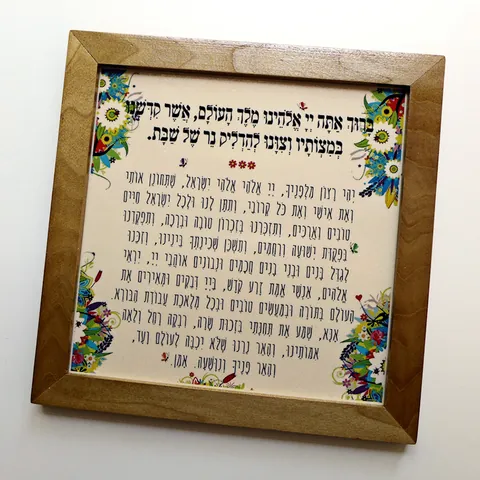 בָּרוּךְ אַתָּה יְיָ אֱלֹהֵינוּ מֶלֶךְ הָעוֹלָם, אֲשֶׁר קִדְּשָׁנוּ
בְּמִצְוֹתָיו וְצִוָּנוּ לְהַדְלִיק נֵר שֶׁל שַׁבָּת.
יְהִי רָצוֹן מִלְּפָנֶיךָ, יְיָ אֱלֹהַי אֱלֹהֵי יִשְׂרָאֵל, שֶׁתְּחוֹנֵן אוֹתִי
וְאֶת אִישִׁי וְאֶת כָּל קְרוֹבַי, וְתִתֵּן לָנוּ וּלְכָל יִשְׂרָאֵל חַיִּים
טוֹבִים וַאֲרֻכִּים, וְתִזְכְּרֵנוּ בְּזִכְרוֹן טוֹבָה וּבְרָכָה, וְתִפְקְדֵנוּ
בִּפְקֻדַּת יְשׁוּעָה וְרַחֲמִים, וְתַשְׁכֵּן שְׁכִינָתְךָ בֵּינֵינוּ, וְזַכֵּנוּ
לְגַדֵּל בָּנִים וּבְנֵי בָנִים חֲכָמִים וּנְבוֹנִים אוֹהֲבֵי יְיָ. יִרְאֵי
אֱלֹהִים, אַנְשֵׁי אֱמֶת זֶרַע קֹדֶשׁ, בַּייָ דְּבֵקִים וּמְאִירִים אֶת
הָעוֹלָם בְּתוֹרָה וּבְמַעֲשִׂים טוֹבִים וּבְכָל מְלֶאכֶת עֲבוֹדַת הַבּוֹרֵא.
אָנָּא, שְׁמַע אֶת תְּחִנָּתִי בִּזְכוּת שָׂרָה, רִבְקָה רָחֵל וְלֵאָה
אִמּוֹתֵינוּ, וְהָאֵר נֵרֵנוּ שֶׁלֹּא יִכְבֶּה לְעוֹלָם וָעֶד,
וְהָאֵר פָּנֶיךָ וְנִוָּשֵׁעָה. אָמֵן.